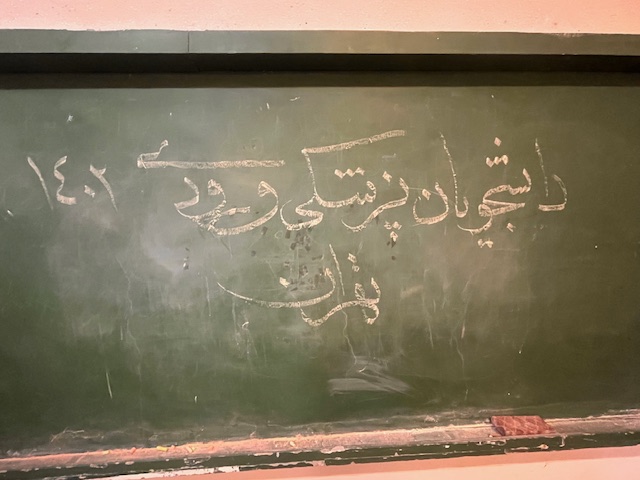 دانشجویان پزشکی ورودی ۱۴۰۲
تهران